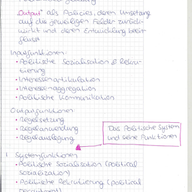 "Output" als Policies, deren Umsetzung
auf die jeweiligen Felder zurück
wirkt und deren Entwicklung beein
flusst
Inputfunktionen:
• Politische Sozialisation & Rekru-
tierung
• Interessenartikulation
• Interessenaggregation
• Politische Kommunikation
Outputfunktionen:
• Regelsetzung
• Regelanwendung
• Regelauslegung
Das Politische System
und seine Funktionen
1. Systemfunktionen
• Politische Sozialisation (political
socialization)
• Politische Rekrutierung (political